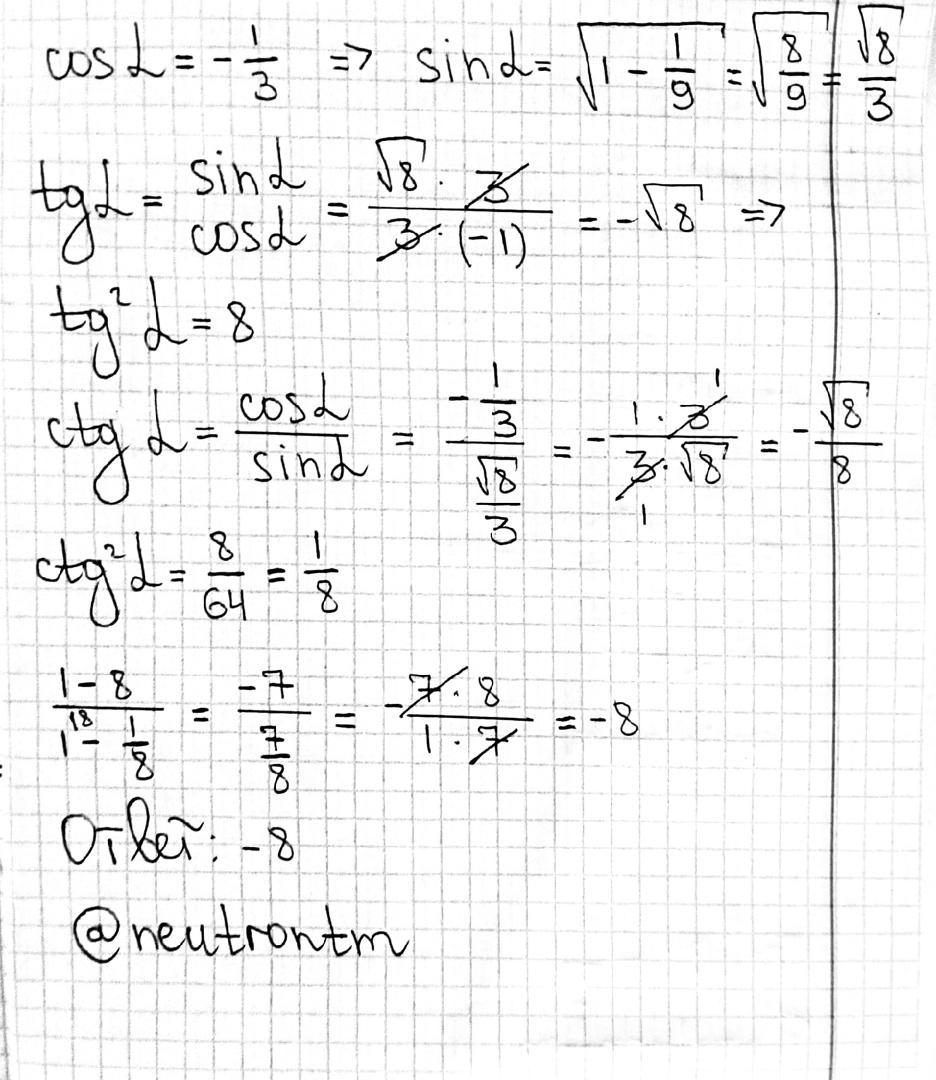 cos α = - 1/3 => sin α = √(1 - 1/9) = √(8/9) = √8/3
tg α = sin α / cos α = √8 · 3 / 3 · (-1) = -√8 =>
tg² α = 8
ctg α = cos α / sin α = (-1/3) / (√8/3) = - 1 · 3 / 3 · √8 = - √8/8
ctg² α = 8/64 = 1/8
(1 - 8) / (1 - 1/8) = -7 / (7/8) = - 7 · 8 / 1 · 7 = -8
Ответ: -8
@neutrontm